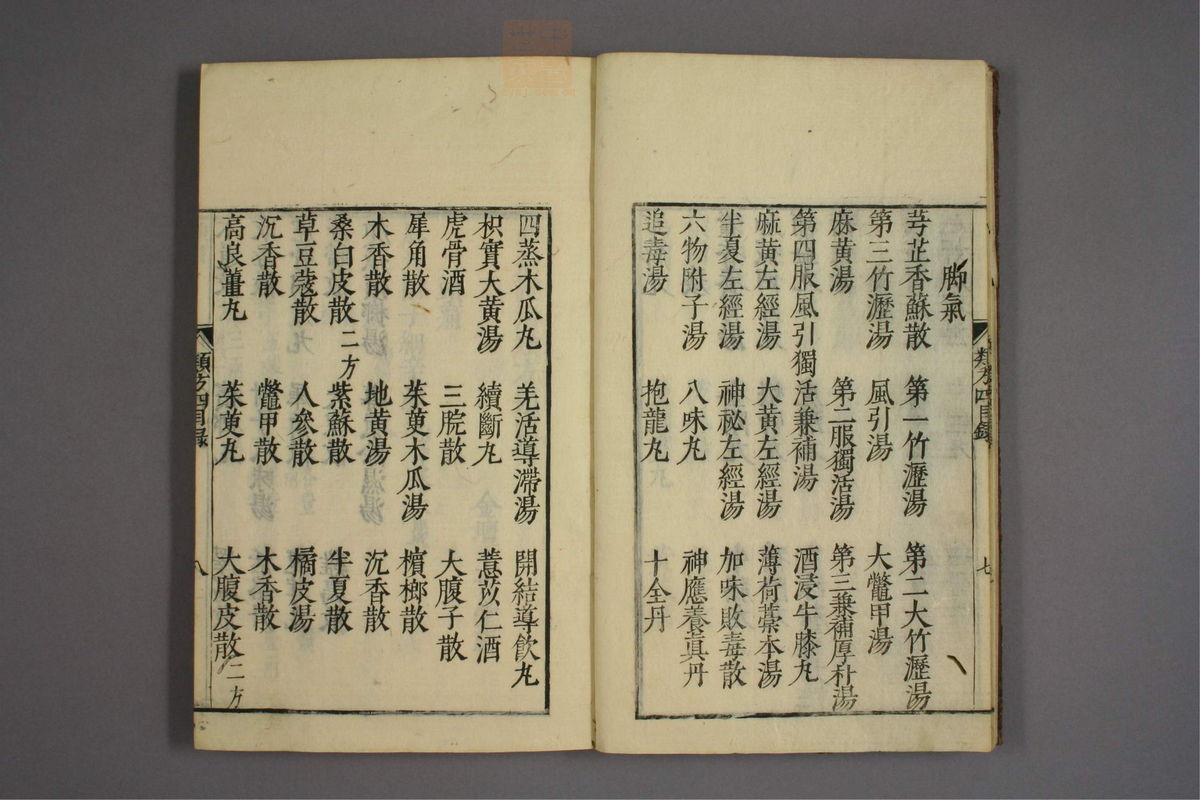 脚氣
芎芷香蘇散 第一竹瀝湯 第二大竹瀝湯
第三竹瀝湯 風引湯 大鱉甲湯
麻黃湯 第二服獨活湯 第三兼補厚朴湯
第四服風引獨活兼補湯 酒浸牛膝丸
麻黃左經湯 大黃左經湯 薄荷藁本湯
半夏左經湯 神祕左經湯 加味敗毒散
六物附子湯 八味丸 神應養真丹
追毒湯 抱龍丸 十全丹
類方四目錄 七
四蒸木瓜丸 羌活導滯湯 開結導飲丸
枳實大黃湯 續斷丸 薏苡仁酒
虎骨酒 三脘散 大腹子散
犀角散 茱萸木瓜湯 檳榔散
木香散 地黃湯 沉香散
桑白皮散二方 紫蘇散 半夏散
草豆蔻散 人參散 橘皮湯
沉香散 鱉甲散 木香散
高良薑丸 茱萸丸 大腹皮散二方
類方四目录 八